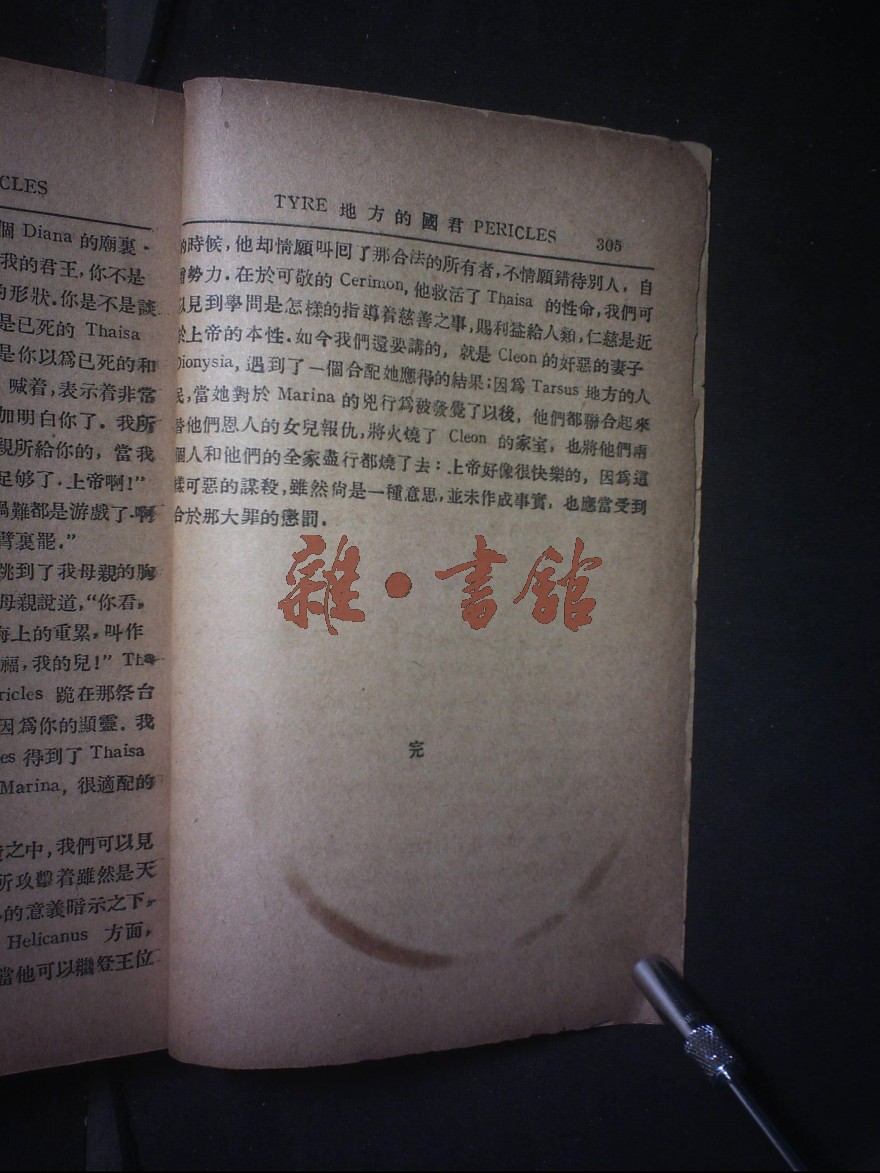 CLES
個 Diana 的廟裏.
我的君王,你不是
的形狀.你是不是談
是已死的 Thaisa
是你以爲已死的和
喊着,表示着非常
加明白你了.我所
親所給你的,當我
足够了.上帝啊!”
過難都是游戲了.啊
臂裏罷.”
跳到了我母親的胸
母親說道,“你看,
海上的重累,叫作
福,我的兒!”
ricles 跪在那祭台
因爲你的顯靈.我
es 得到了 Thaisa
Marina, 很適配的
之中,我們可以見
所攻擊着雖然是天
的意義暗示之下,
Helicanus 方面,
當他可以繼登王位
TYRE 地方的國君 PERICLES 305
的時候,他却情願叫囘了那合法的所有者,不情願錯待別人,自
增勢力.在於可敬的 Cerimon, 他救活了 Thaisa 的性命,我們可
以見到學問是怎樣的指導着慈善之事,賜利益給人類,仁慈是近
於上帝的本性.如今我們還要講的,就是 Cleon 的奸惡的妻子
Dionysia, 遇到了一個合配她應得的結果;因爲 Tarsus 地方的人
民,當她對於 Marina 的兇行爲被發覺了以後,他們都聯合起來
替他們恩人的女兒報仇,將火燒了 Cleon 的家室,也將他們兩
個人和他們的全家盡行都燒了去:上帝好像很快樂的,因爲這
樣可惡的謀殺,雖然尙是一種意思,並未作成事實,也應當受到
合於那大罪的懲罰.
雜·書館
完